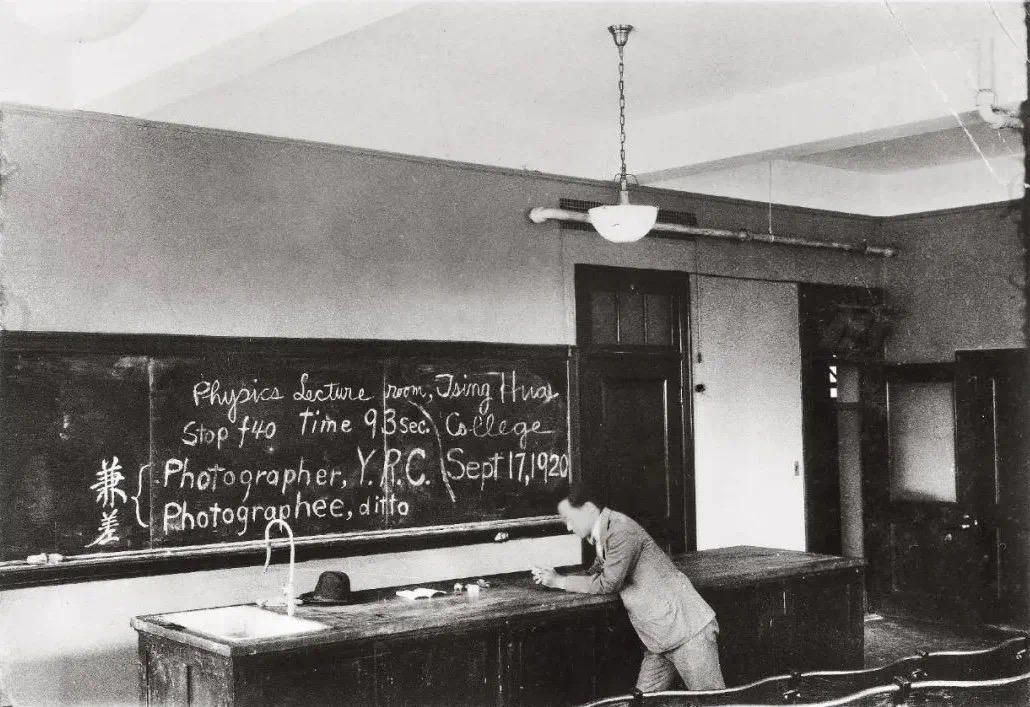 Physics Lecture room, Tsing Hua
Stop f40 Time 93sec. College
Photographer, Y.R.C. Sept 17, 1920
Photographee, ditto
兼差